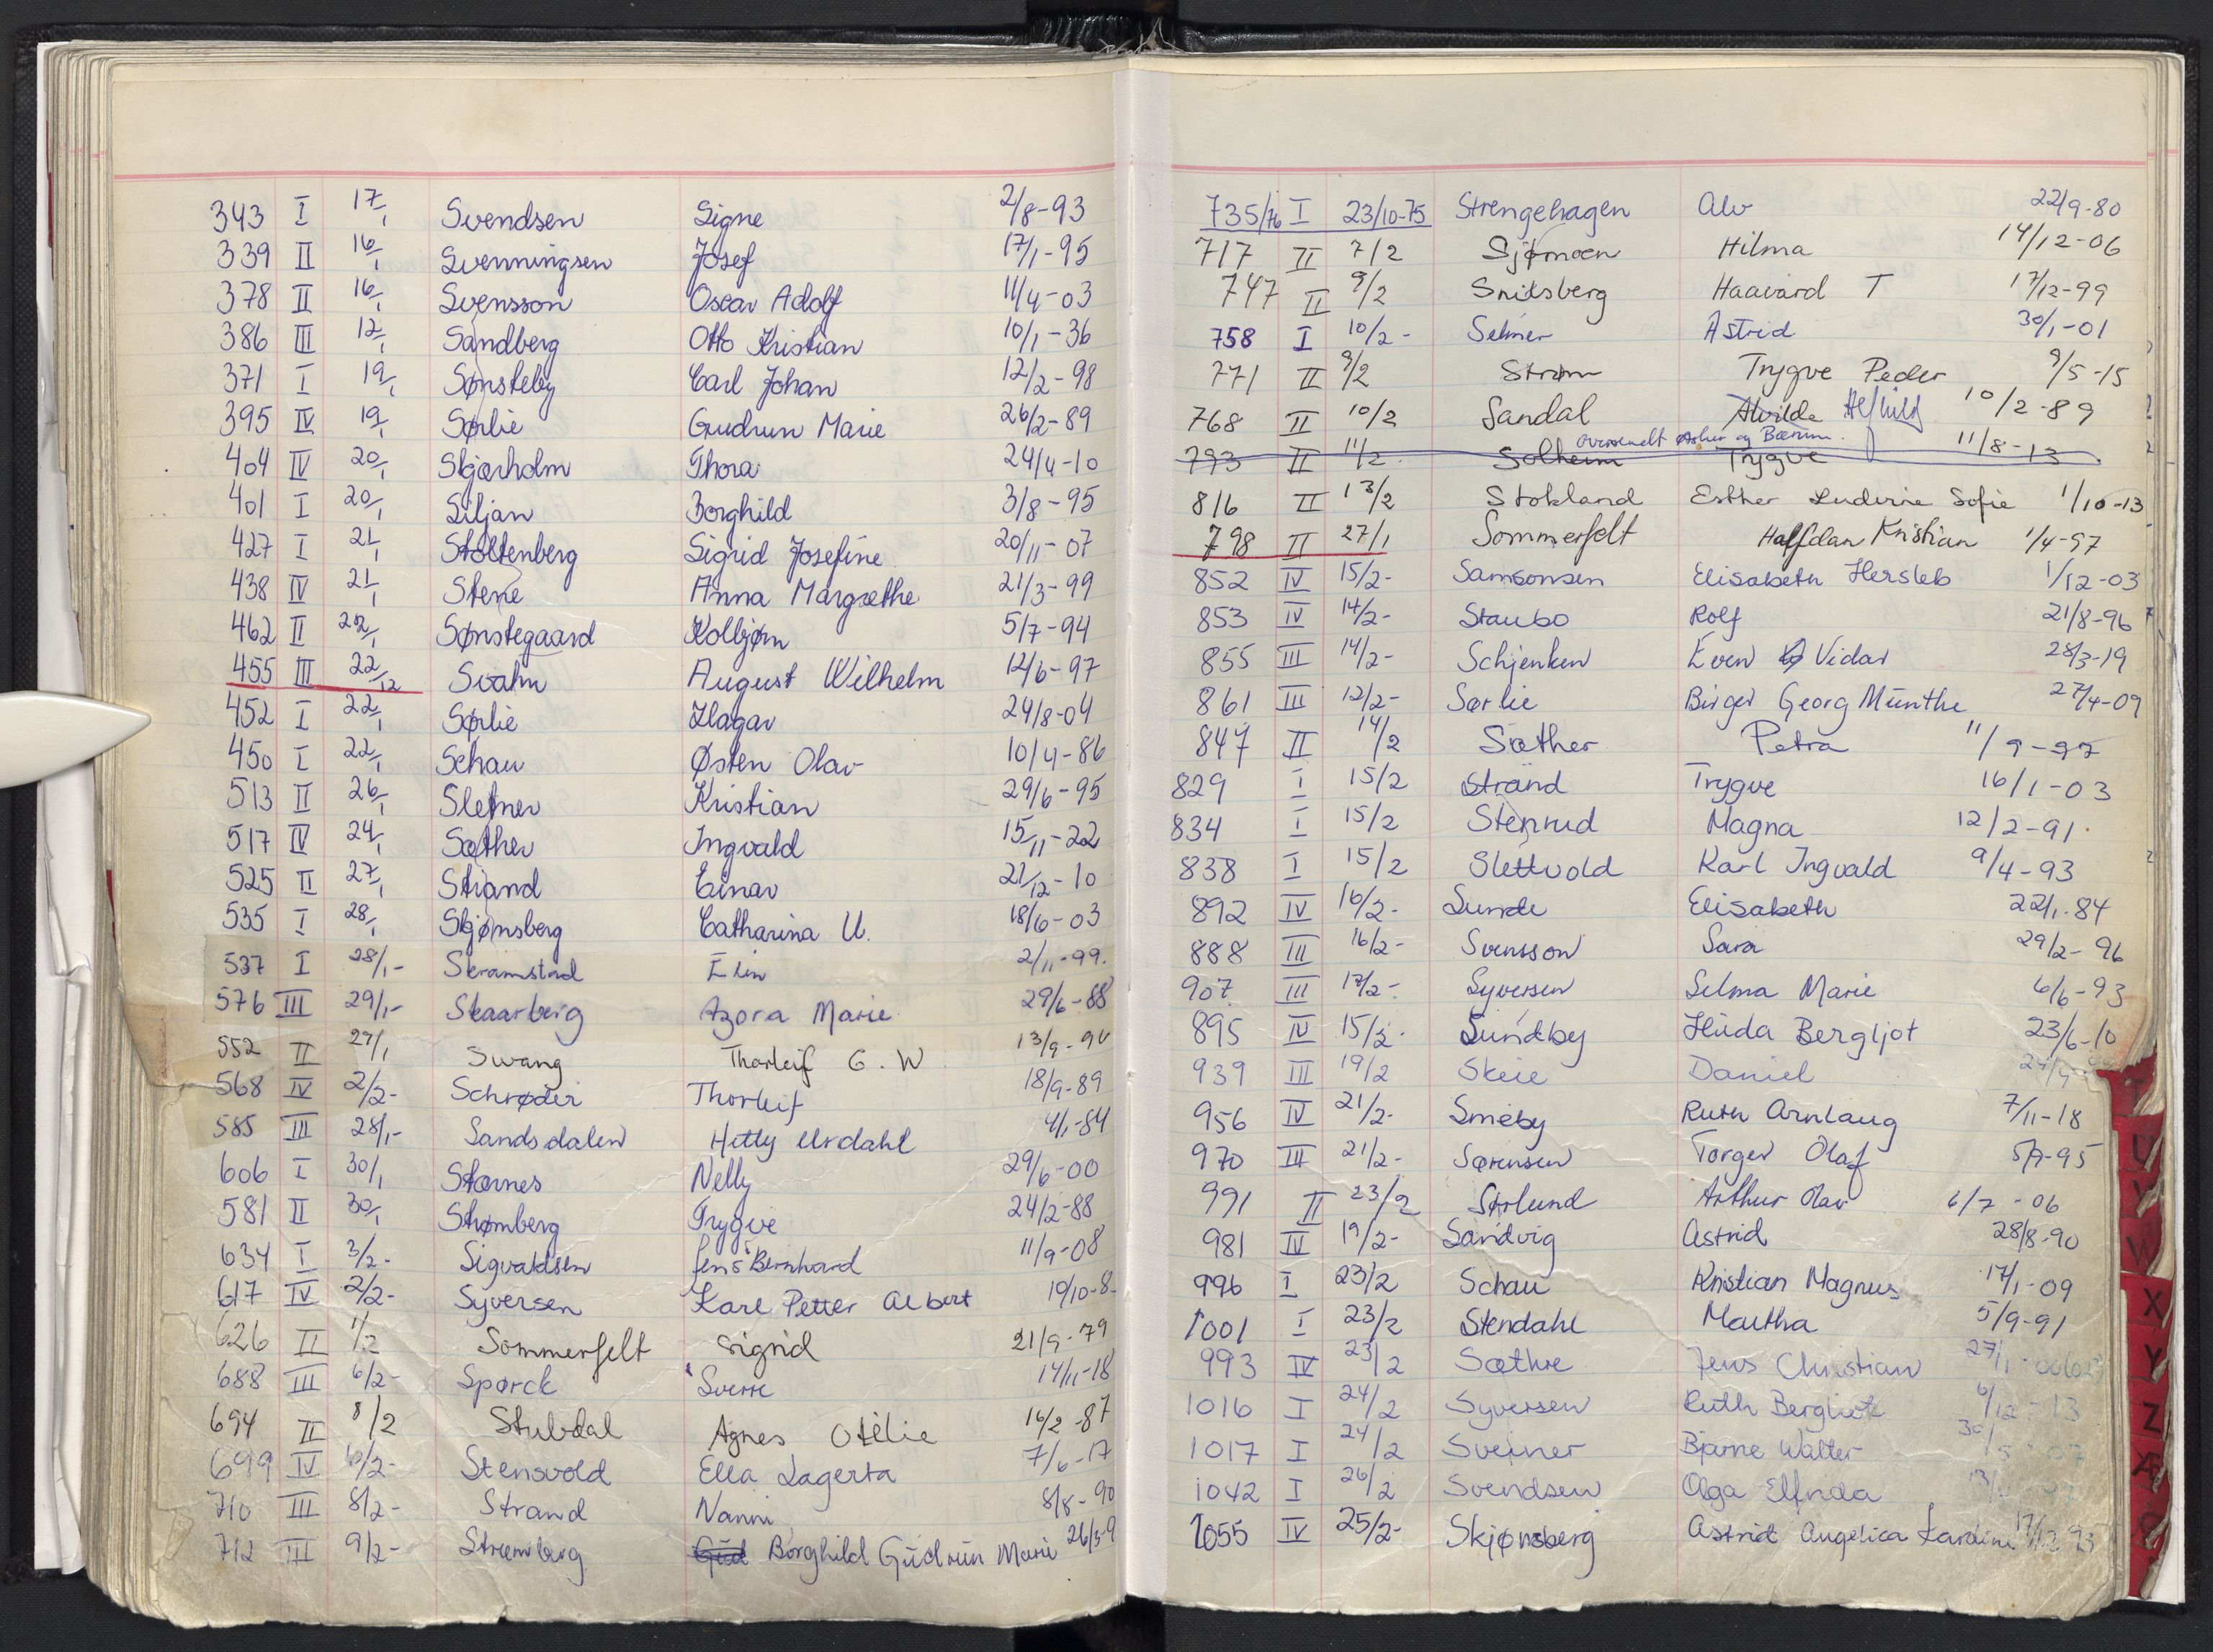 343 I 17/1 Svendsen Signe 2/8-93
339 II 16/1 Svenningsen Josef 17/1-95
378 II 16/1 Svensson Oscar Adolf 11/4-03
386 III 12/1 Sandberg Otto Kristian 10/1-36
371 I 19/1 Sønsteby Carl Johan 12/2-98
395 IV 19/1 Sørlie Gudrun Marie 26/2-89
404 IV 20/1 Skjærholm Thora 24/4-10
401 I 20/1 Siljan Borghild 3/8-95
427 I 21/1 Stoltenberg Sigrid Josefine 20/11-07
438 IV 21/1 Stene Anna Margrethe 21/3-99
462 II 22/1 Sønstegaard Kolbjørn 5/7-94
455 III 22/12 Svahn August Wilhelm 12/6-97
452 I 22/1 Sørlie Hagar 24/8-04
450 I 22/1 Schau Østen Olav 10/4-86
513 II 26/1 Sletner Kristian 29/6-95
517 IV 24/1 Sæther Ingvald 15/11-22
525 II 27/1 Strand Einar 21/12-10
535 I 28/1 Skjønsberg Catharina U. 18/6-03
537 I 28/1- Skramstad Elin 2/11-99.
576 III 29/1- Skaarberg Azora Marie 29/6-88
552 II 27/1 Swang Thorleif G. W 13/9-
568 IV 2/2- Schrøder Thorleif 18/9-89
585 III 28/1- Sandsdalen Hetty Urdahl 4/1-84
606 I 30/1 Starnes Nelly 29/6-00
581 II 30/1 Strømberg Trygve 24/2-88
634 I 3/2- Sigvaldsen Jens Bernhard 11/9-08
617 IV 2/2- Syversen Karl Petter Albert 19/10-8
626 II 1/2 Sommerfelt Sigrid 21/9-79
688 III 6/2- Spørck Sverre 14/11-18
694 II 8/2 Stubdal Agnes Otelie 16/2-87
699 IV 6/2- Stensvold Ella Lagerta 7/6-17
710 III 8/2- Strand Nanni 8/8-90
712 III 9/2- Strømberg Gud Borghild Gudrun Marie 26/5-9
735/76 I 23/10-75 Strengehagen Alv 22/9-80
717 II 7/2 Sjømoen Hilma 14/12-06
747 II 9/2 Snilsberg Haavard T 17/12-99
758 I 10/2- Selmer Astrid 30/1-01
771 II 9/2 Strøm Trygve Peder 9/5-15
768 II 10/2 Sandal Alvilde Alfhild 10/2-89
oversendt Asker og Bærum.
793 II 11/2 Solheim Trygve 11/8-13
816 II 13/2 Stokland Esther Ludvine Sofie 1/10-13
798 II 27/1 Sommerfelt Halfdan Kristian 1/4-97
852 IV 15/2- Samsonsen Elisabeth Hersleb 1/12-03
853 IV 14/2- Staubo Rolf 21/8-96
855 III 14/2- Schjenken Even Vidar 28/3-19
861 III 12/2- Sørlie Birger Georg Munthe 27/4-09
847 II 14/2 Sæther Petra 11/9-97
829 I 15/2 Strand Trygve 16/1-03
834 I 15/2 Stenrud Magna 12/2-91.
838 I 15/2 Slettvold Karl Ingvald 9/4-93
892 IV 16/2- Sunde Elisabeth 22/1.84
888 III 16/2- Svensson Sara 29/2-96
907 III 17/2- Syversen Selma Marie 6/6-93
895 IV 15/2- Sundby Hilda Bergljot 23/6-10
939 III 19/2 Skeie Daniel
956 IV 21/2- Smeby Ruth Arnlaug 7/11-18
970 III 21/2- Sørensen Torger Olaf 5/7-95
991 II 23/2 Sørlund Arthur Olav 6/7-06
981 IV 19/2- Sandvig Astrid 28/8-90
996 I 23/2 Schau Kristian Magnus 17/1-09
1001 I 23/2 Stendahl Martha 5/9-91
993 IV 23/2 Sæthre Jens Christian 27/1-
1016 I 24/2 Syversen Ruth Bergliot 6/12-13
1017 I 24/2 Sveiner Bjarne Walter 30/5-07
1042 I 26/2 Svendsen Olga Elfrida
1055 IV 25/2- Skjønsberg Astrid Angelica Kardine 17/12 93
U
V
W
X
Y
Z
Æ